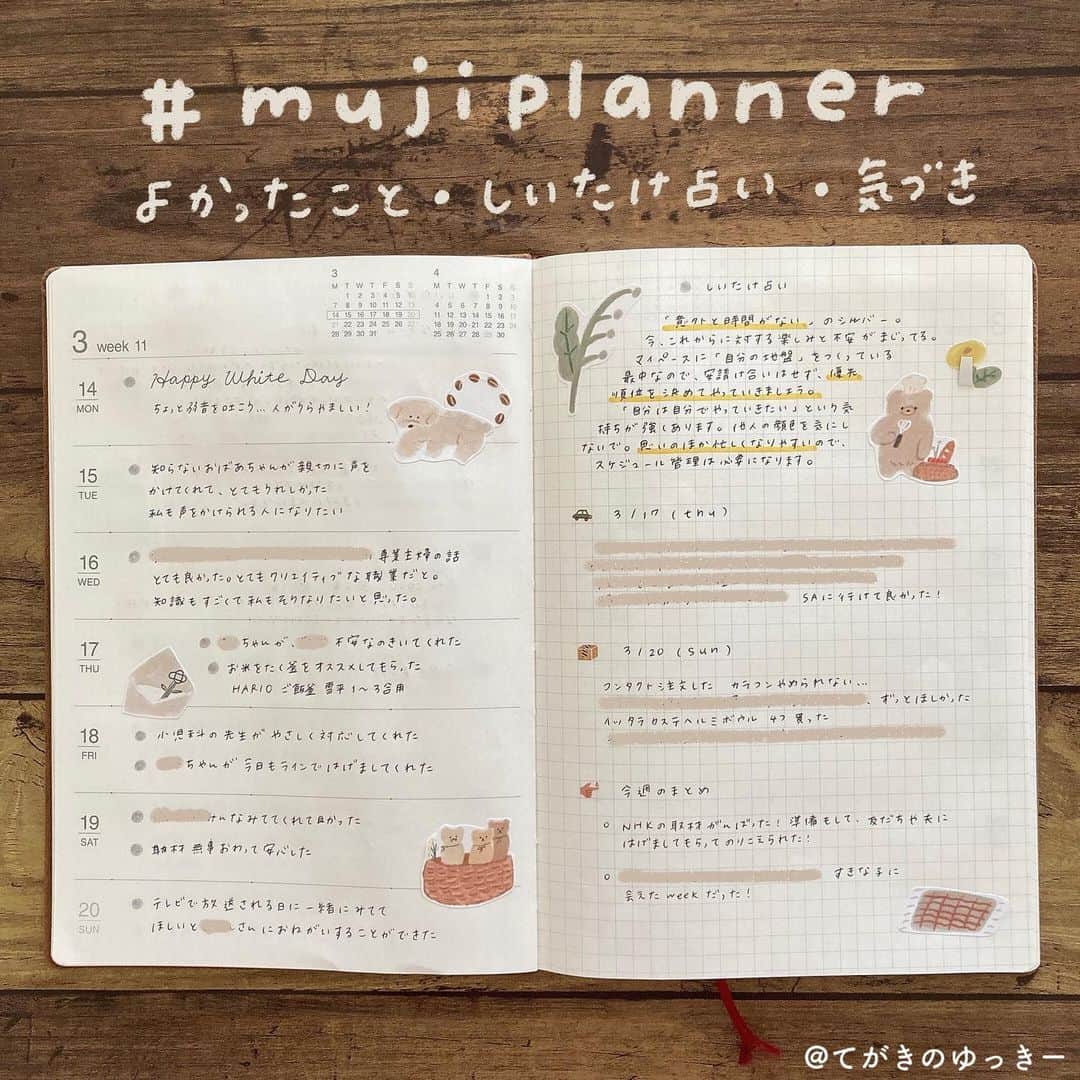 #mujiplanner
よかったこと・しいたけ占い・気づき
3 4
M T W T F S S M T W T F S S
1 2 3 4 5 6 1 2 3
7 8 9 10 11 12 13 4 5 6 7 8 9 10
14 15 16 17 18 19 20 11 12 13 14 15 16 17
21 22 23 24 25 26 27 18 19 20 21 22 23 24
28 29 30 31 25 26 27 28 29 30
3 week 11
14 MON
Happy White Day
ちょっと弱音を吐こう…人がうらやましい！
15 TUE
知らないおばあちゃんが親切に声を
かけてくれて、とてもうれしかった
私も声をかけられる人になりたい
16 WED
専業主婦の話
とても良かった。とてもクリエイティブな職業だと。
知識もすごくて私もそうなりたいと思った。
17 THU
ちゃんが、不安なのきいてくれた
お米をたく釜をオススメしてもらった
HARIO ご飯釜 雪平 1〜3合用
18 FRI
小児科の先生がやさしく対応してくれた
ちゃんが今日もラインではげましてくれた
19 SAT
みてくれて良かった
取材無事おわって安心した
20 SUN
テレビで放送される日に一緒にみてて
ほしいと さんにおねがいすることができた
しいたけ占い
「意外と時間がない」のシルバー。
今、これからに対する楽しみと不安がまじってる。
マイペースに「自分の地盤」をつくっている
最中なので、安請け合いはせず、優先
順位を決めてやっていきましょう。
「自分は自分でやっていきたい」という気
持ちが強くあります。他人の顔色を気にし
ないで。思いのほか忙しくなりやすいので、
スケジュール管理は必要になります。
3/17 (thu)
SAに行けて良かった！
3/20 (sun)
コンタクト注文した カラコンやめられない…
、ずっとほしかった
イッタラカステヘルミボウル 4つ買った
今週のまとめ
NHKの取材がんばった！準備もして、友だちや夫に
はげましてもらってのりこえられた！
すきな子に
会えたweekだった！
@てがきのゆっきー